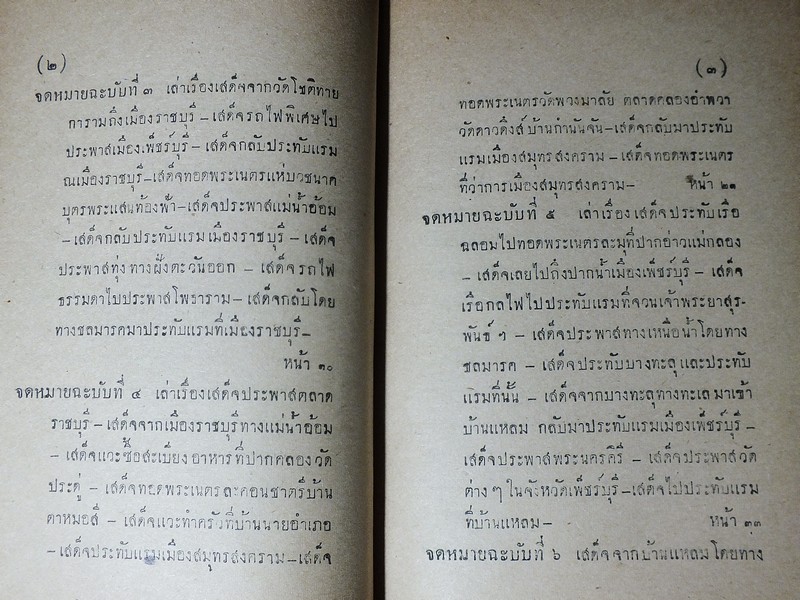 (๒)
จดหมายฉะบับที่ ๓ เล่าเรื่องเสด็จจากวัดโชติทาย
การามถึงเมืองราชบุรี – เสด็จรถไฟพิเศษไป
ประพาสเมืองเพ็ชร์บุรี – เสด็จกลับประทับแรม
ณเมืองราชบุรี–เสด็จทอดพระเนตรแห่บวชนาค
บุตรพระแสนท้องฟ้า–เสด็จประพาสแม่น้ำอ้อม
– เสด็จกลับประทับแรมเมืองราชบุรี – เสด็จ
ประพาสทุ่งทางฝั่งตะวันออก – เสด็จรถไฟ
ธรรมดาไปประพาสโพธาราม – เสด็จกลับโดย
ทางชลมารคมาประทับแรมที่เมืองราชบุรี–
หน้า ๑๐
จดหมายฉะบับที่ ๔ เล่าเรื่องเสด็จประพาสตลาด
ราชบุรี – เสด็จจากเมืองราชบุรีทางแม่น้ำอ้อม
– เสด็จแวะซื้อสะเบียงอาหารที่ปากคลองวัด
ประดู่ – เสด็จทอดพระเนตรละคอนชาตรีบ้าน
ตาหมอสี – เสด็จแวะทำครัวที่บ้านนายอำเภอ
– เสด็จประทับแรมเมืองสมุทรสงคราม – เสด็จ
(๓)
ทอดพระเนตรวัดพวงมาลัย ตลาดคลองอัมพวา
วัดดาวดึงส์ บ้านกำนันจัน–เสด็จกลับมาประทับ
แรมเมืองสมุทรสงคราม – เสด็จทอดพระเนตร
ที่ว่าการเมืองสมุทรสงคราม– หน้า ๒๑
จดหมายฉะบับที่ ๕ เล่าเรื่องเสด็จประทับเรือ
ฉลอมไปทอดพระเนตรละมุที่ปากอ่าวแม่กลอง
– เสด็จเลยไปถึงปากน้ำเมืองเพ็ชร์บุรี – เสด็จ
เรือกลไฟไปประทับแรมที่จวนเจ้าพระยาสุร-
พันธ์ ฯ – เสด็จประพาสทางเหนือน้ำโดยทาง
ชลมารค – เสด็จประทับบางทะลุและประทับ
แรมที่นั้น – เสด็จจากบางทะลุทางทะเลมาเข้า
บ้านแหลม กลับมาประทับแรมเมืองเพ็ชร์บุรี –
เสด็จประพาสพระนครคิรี – เสด็จประพาสวัด
ต่าง ๆ ในจังหวัดเพ็ชร์บุรี–เสด็จไปประทับแรม
ที่บ้านแหลม– หน้า ๓๓
จดหมายฉะบับที่ ๖ เสด็จจากบ้านแหลมโดยทาง